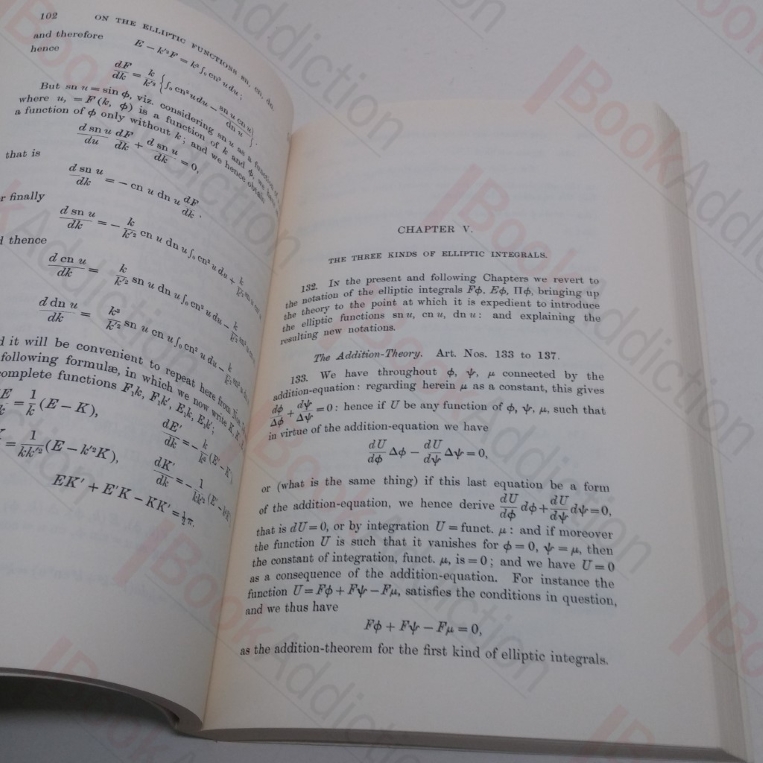 102 ON THE ELLIPTIC FUNCTIONS sn, cn, dn.
and therefore
E − k'²F = k² ∫₀ cn² u du;
hence
dF/dk = k/k'² { ∫₀ cn² u du − sn u cn u / dn u }.
But sn u = sin ϕ, viz. considering sn u as a function of
where u, = F(k, ϕ) is a function of k and ϕ,
a function of ϕ only without k; and we hence obtain
d sn u/du dF/dk + d sn u/dk = 0,
that is
d sn u/dk = − cn u dn u dF/dk.
r finally
d sn u/dk = − k/k'² cn u dn u ∫₀ cn² u du + k/k'²
d thence
d cn u/dk = k/k'² sn u dn u ∫₀ cn² u du − k/k'²
d dn u/dk = k²/k'² sn u cn u ∫₀ cn² u du − k/k'²
d it will be convenient to repeat here from
following formulæ, in which we now write K,
omplete functions F₁k, F₁k', E₁k, E₁k';
= 1/k (E − K), dE'/dk = − k/k'² (E' − K'),
= 1/kk'² (E − k'²K), dK'/dk = − 1/kk'² (E' −
EK' + E'K − KK' = ½π.
CHAPTER V.
THE THREE KINDS OF ELLIPTIC INTEGRALS.
132. In the present and following Chapters we revert to
the notation of the elliptic integrals Fϕ, Eϕ, Πϕ, bringing up
the theory to the point at which it is expedient to introduce
the elliptic functions sn u, cn u, dn u: and explaining the
resulting new notations.
The Addition-Theory. Art. Nos. 133 to 137.
133. We have throughout ϕ, ψ, μ connected by the
addition-equation: regarding herein μ as a constant, this gives
dϕ/Δϕ + dψ/Δψ = 0: hence if U be any function of ϕ, ψ, μ, such that
in virtue of the addition-equation we have
dU/dϕ Δϕ − dU/dψ Δψ = 0,
or (what is the same thing) if this last equation be a form
of the addition-equation, we hence derive dU/dϕ dϕ + dU/dψ dψ = 0,
that is dU = 0, or by integration U = funct. μ: and if moreover
the function U is such that it vanishes for ϕ = 0, ψ = μ, then
the constant of integration, funct. μ, is = 0; and we have U = 0
as a consequence of the addition-equation. For instance the
function U = Fϕ + Fψ − Fμ, satisfies the conditions in question,
and we thus have
Fϕ + Fψ − Fμ = 0,
as the addition-theorem for the first kind of elliptic integrals.
BookAddiction